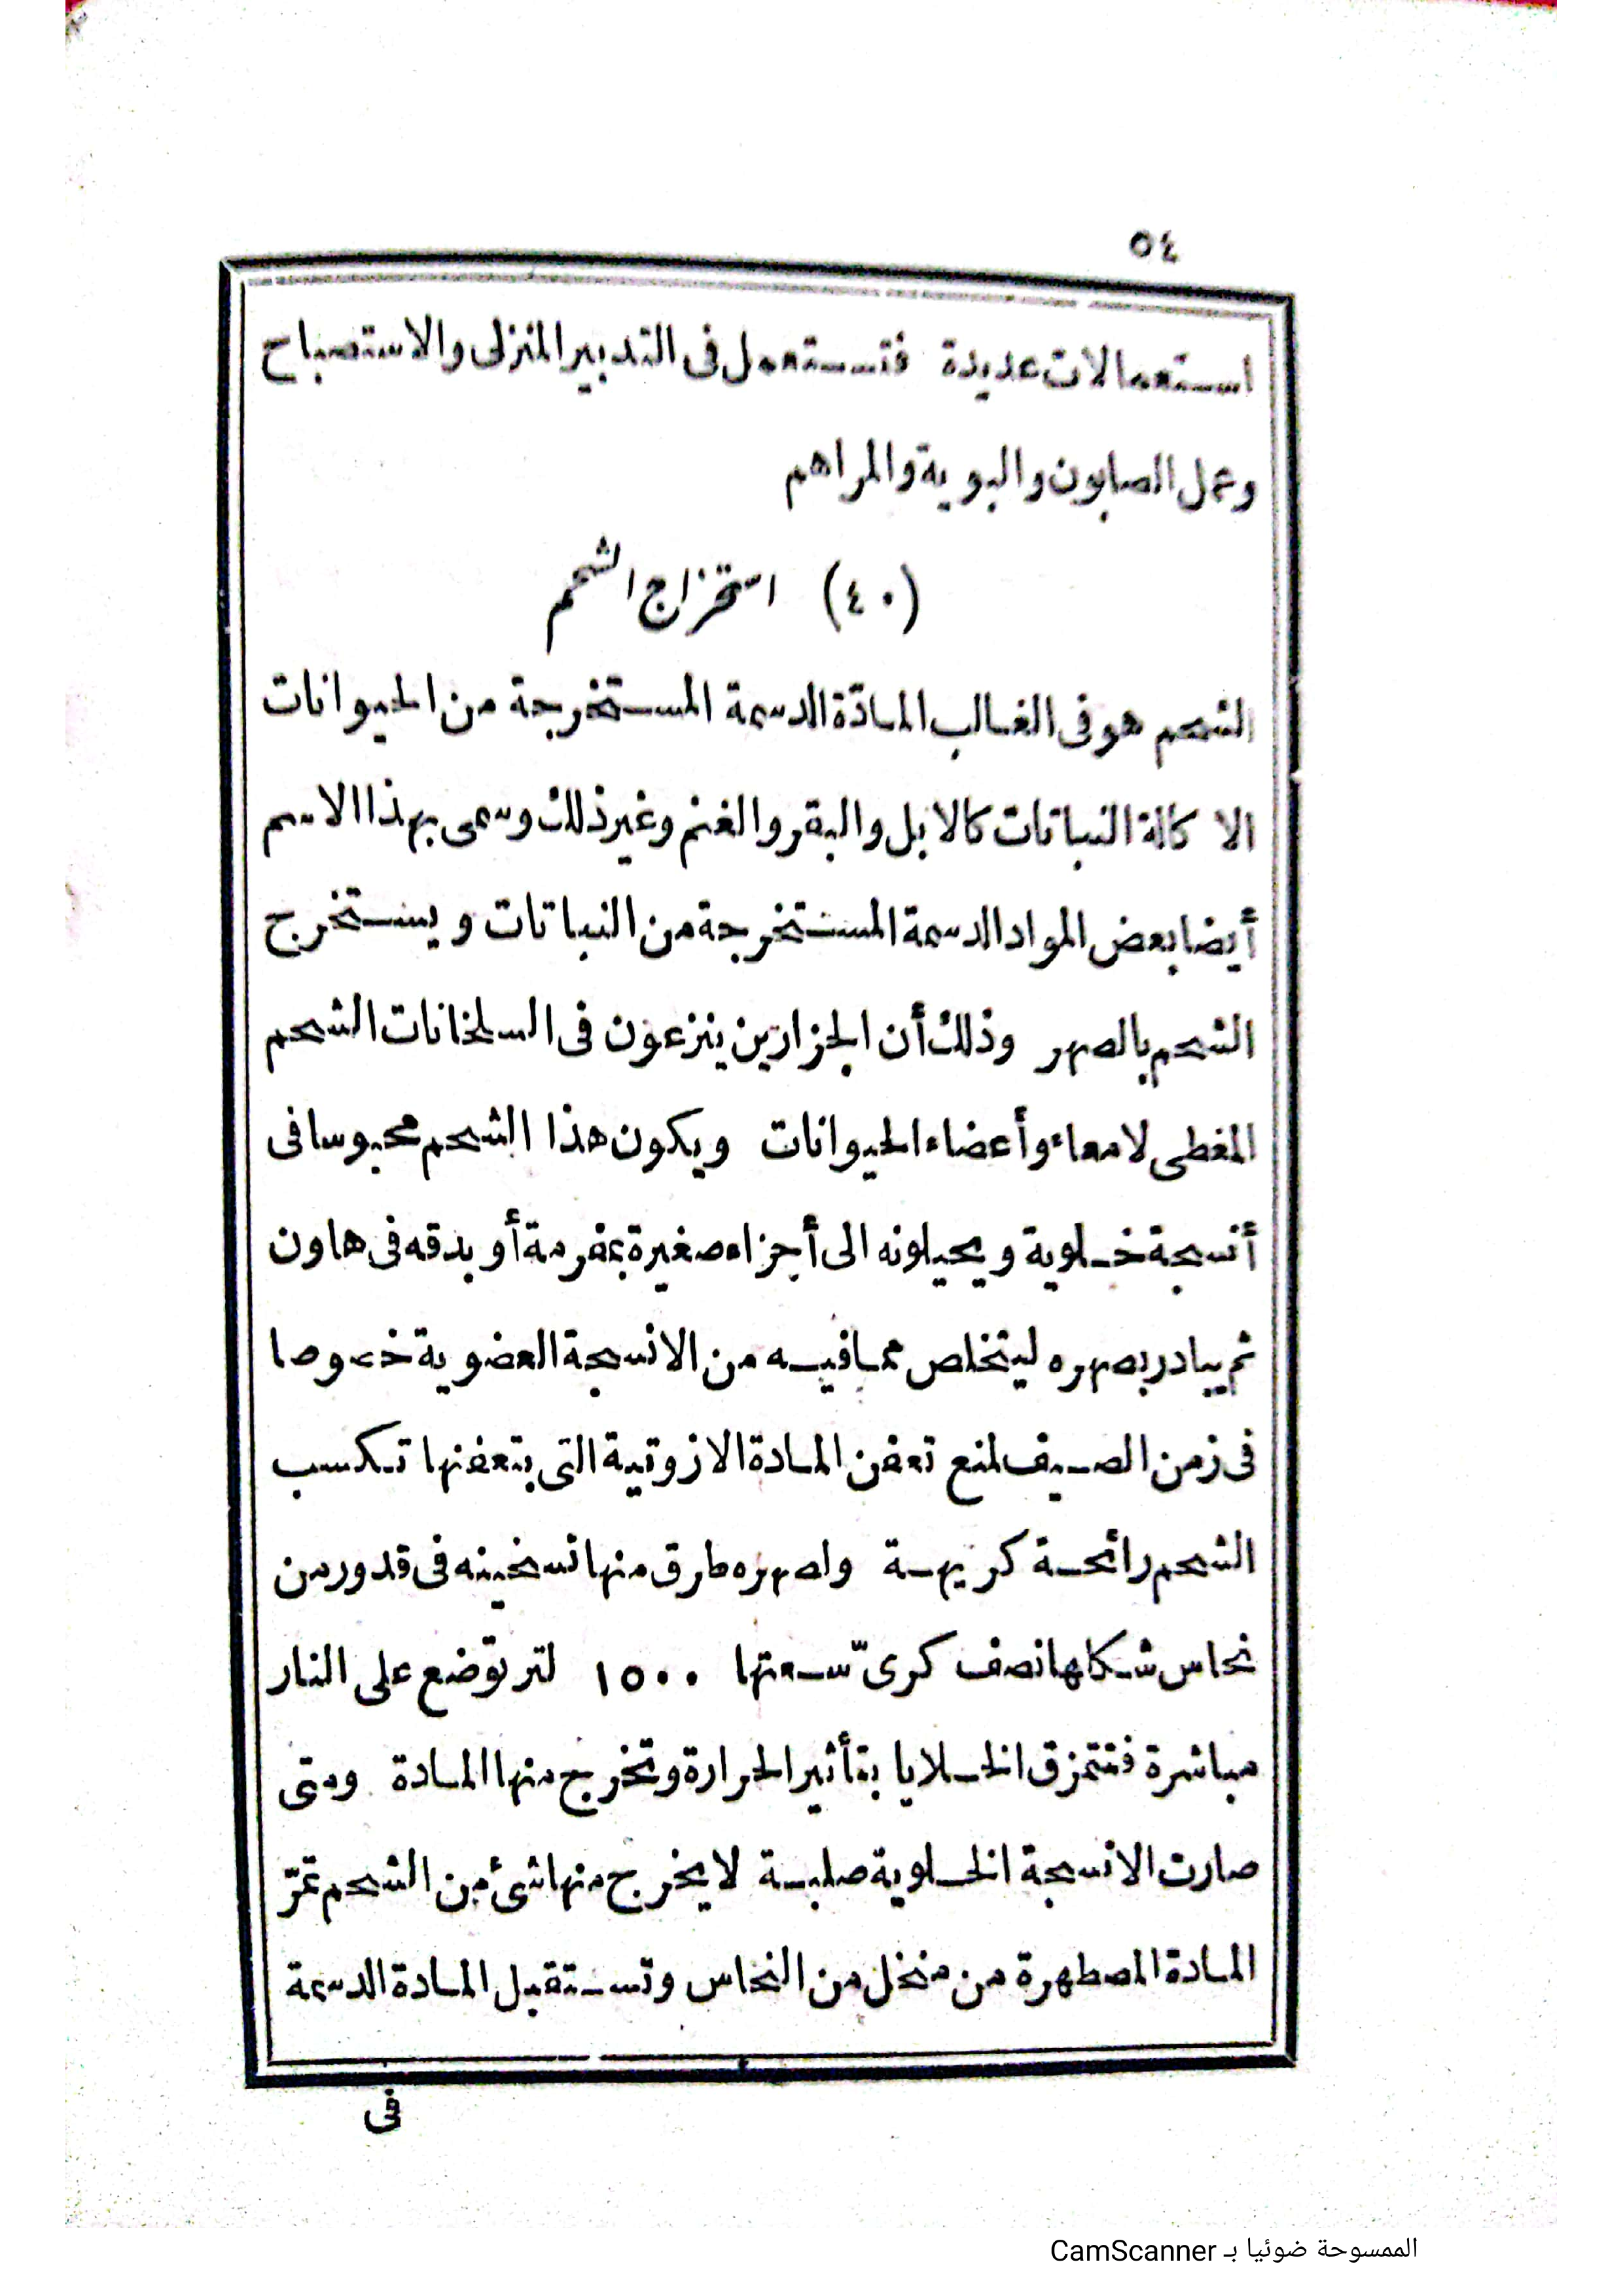 ٥٤
استعمالات عديدة فتستعمل فى التدبير المنزلى والاستصباح
وعمل الصابون والبوية والمراهم
(٤٠) استخراج الشحم
الشحم هو فى الغالب المادّة الدسمة المستخرجة من الحيوانات
الاكالة النباتات كالابل والبقر والغنم وغير ذلك وسمى بهذا الاسم
أيضا بعض المواد الدسمة المستخرجة من النباتات ويستخرج
الشحم بالصهر وذلك أن الجزارين ينزعون فى السلخانات الشحم
المغطى لامعاء وأعضاء الحيوانات ويكون هذا الشحم محبوسا فى
أنسجة خلوية ويحيلونه الى أجزاء صغيرة بمفرمة أو بدقه فى هاون
ثم يبادر بصهره ليتخلص مما فيه من الانسجة العضوية خصوصا
فى زمن الصيف لمنع تعفن المادة الازوتية التى بتعفنها تكسب
الشحم رائحة كريهة ولصهره طرق منها تسخينه فى قدور من
نحاس شكلها نصف كرىّ سعتها ١٥٠٠ لتر توضع على النار
مباشرة فتتمزق الخلايا بتأثير الحرارة وتخرج منها المادة ومتى
صارت الانسجة الخلوية صلبة لا يخرج منها شئ من الشحم تمرّ
المادة المصطهرة من منخل من النحاس وتستقبل المادة الدسمة
فى
الممسوحة ضوئيا بـ CamScanner